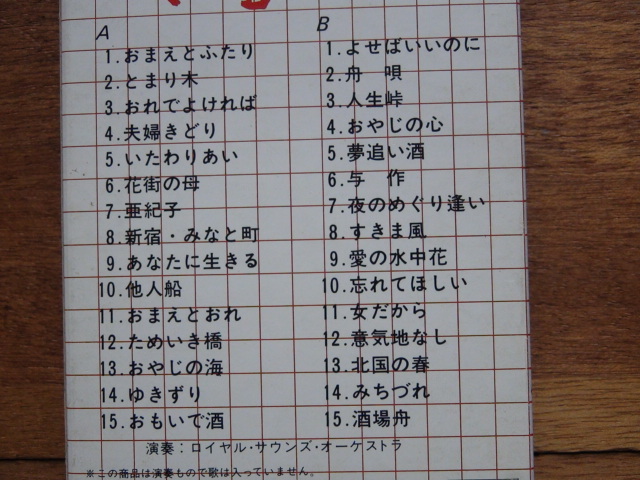 A
1.おまえとふたり
2.とまり木
3.おれでよければ
4.夫婦きどり
5.いたわりあい
6.花街の母
7.亜紀子
8.新宿・みなと町
9.あなたに生きる
10.他人船
11.おまえとおれ
12.ためいき橋
13.おやじの海
14.ゆきずり
15.おもいで酒
B
1.よせばいいのに
2.舟　唄
3.人生峠
4.おやじの心
5.夢追い酒
6.与　作
7.夜のめぐり逢い
8.すきま風
9.愛の水中花
10.忘れてほしい
11.女だから
12.意気地なし
13.北国の春
14.みちづれ
15.酒場舟
演奏：ロイヤル・サウンズ・オーケストラ
※この商品は演奏もので歌は入っていません。